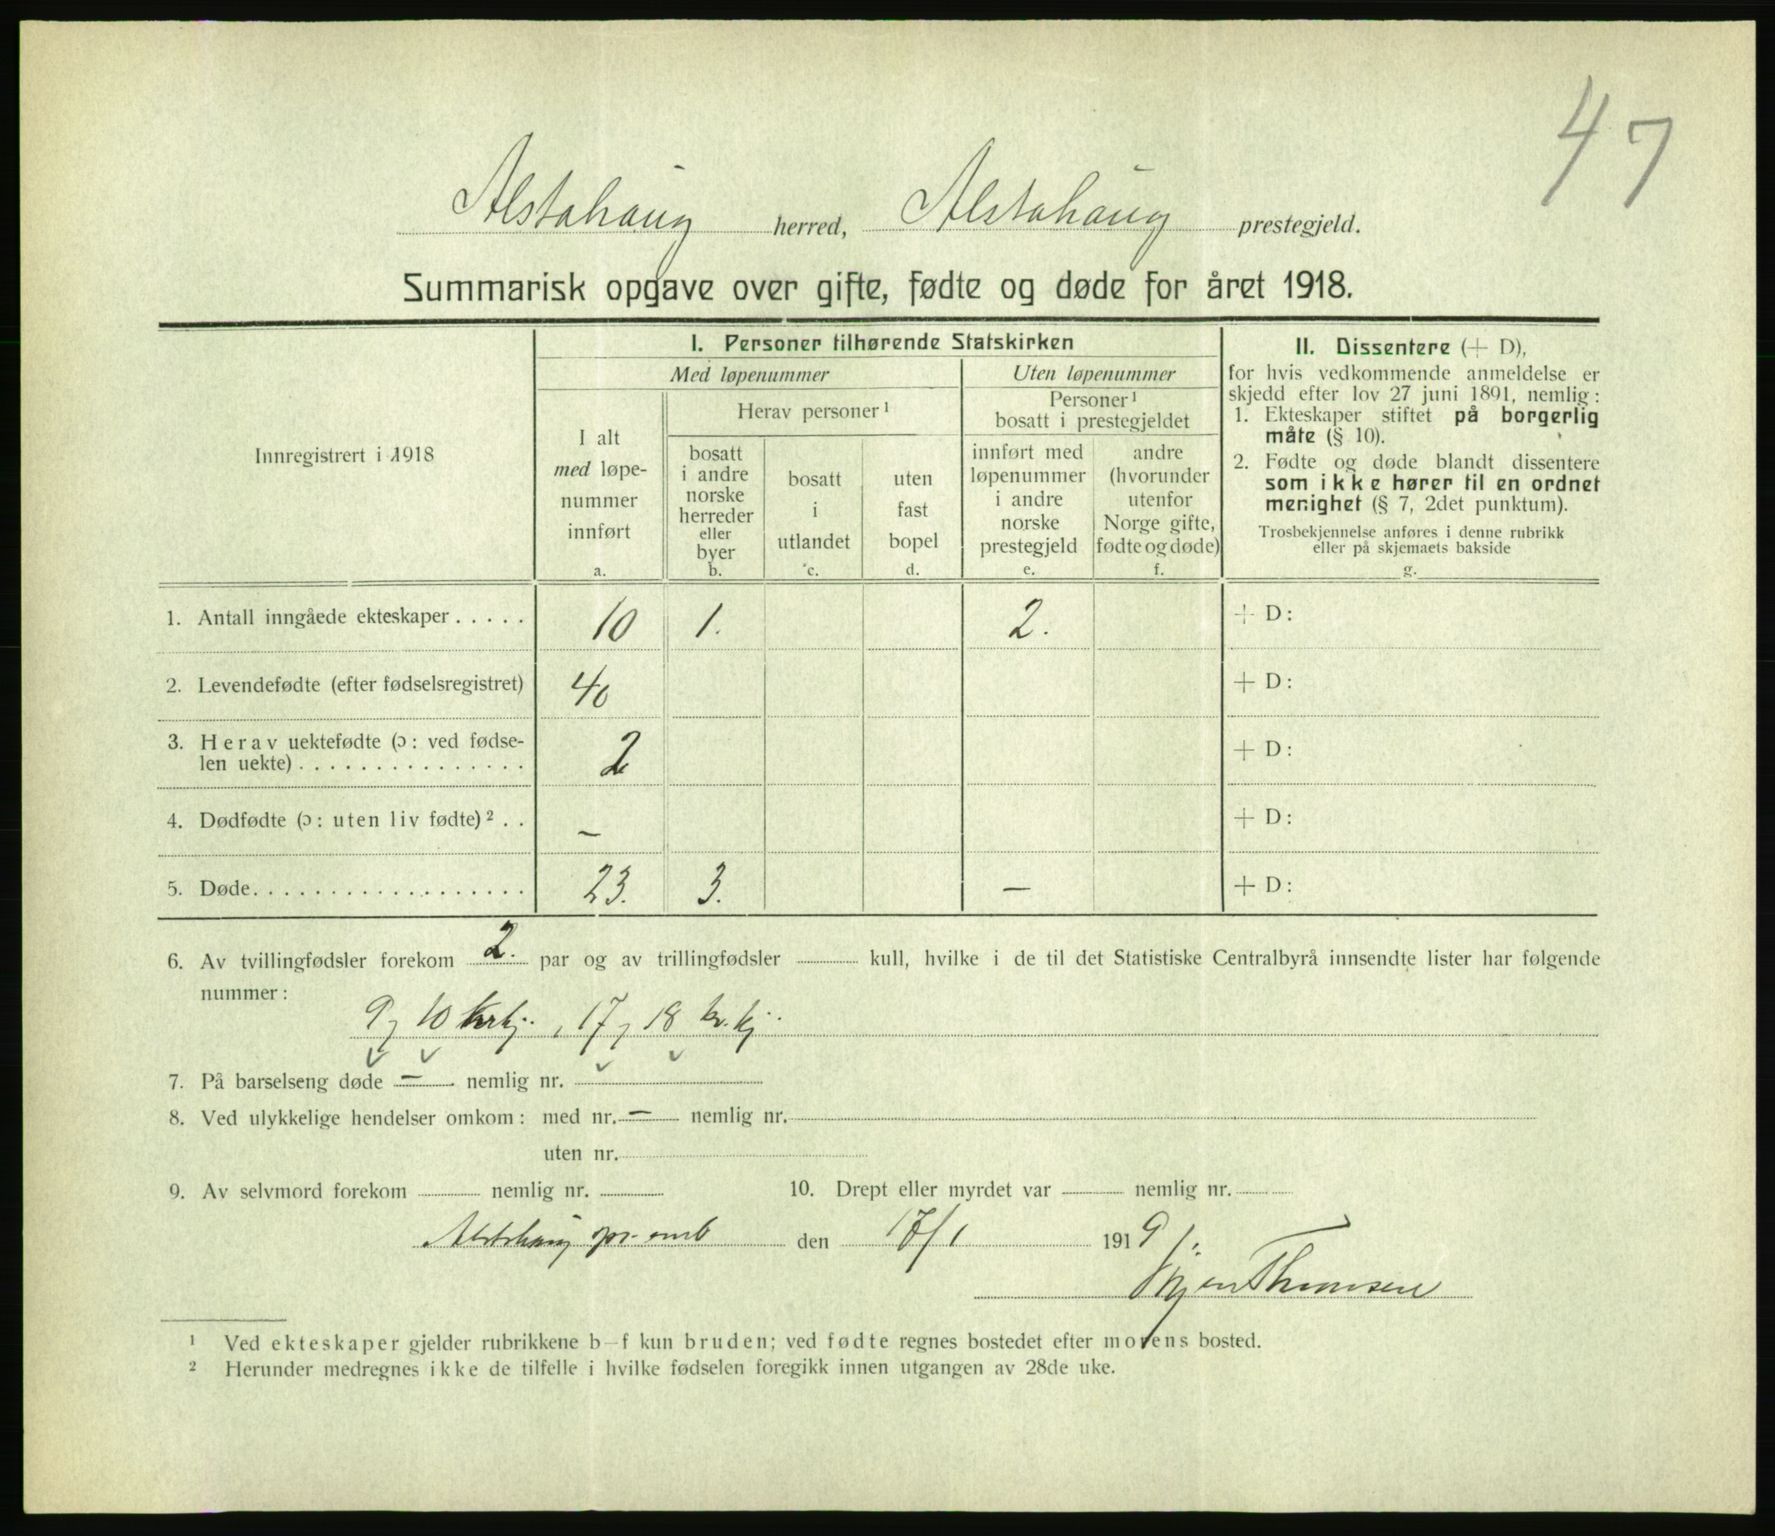 47
Alstahaug herred, Alstahaug prestegjeld.
Summarisk opgave over gifte, fødte og døde for året 1918.
Innregistrert i 1918
I. Personer tilhørende Statskirken
Med løpenummer
Uten løpenummer
I alt
med løpe-
nummer
innført
a.
Herav personer ¹
bosatt
i andre
norske
herreder
eller
byer
b.
bosatt
i
utlandet
c.
uten
fast
bopel
d.
Personer ¹
bosatt i prestegjeldet
innført med
løpenummer
i andre
norske
prestegjeld
e.
andre
(hvorunder
utenfor
Norge gifte,
fødte og døde)
f.
II. Dissentere (+ D),
for hvis vedkommende anmeldelse er
skjedd efter lov 27 juni 1891, nemlig:
1. Ekteskaper stiftet på borgerlig
måte (§ 10).
2. Fødte og døde blandt dissentere
som ikke hører til en ordnet
menighet (§ 7, 2det punktum).
Trosbekjennelse anføres i denne rubrikk
eller på skjemaets bakside
g.
1. Antall inngåede ekteskaper . . . . . 10 1. 2. + D:
2. Levendefødte (efter fødselsregistret) 40 + D:
3. Herav uektefødte (ɔ: ved fødse-
len uekte) . . . . . . . . . . . . . . . 2 + D:
4. Dødfødte (ɔ: uten liv fødte) ² . . — + D:
5. Døde. . . . . . . . . . . . . . . . . . 23. 3. — + D:
6. Av tvillingfødsler forekom 2. par og av trillingfødsler kull, hvilke i de til det Statistiske Centralbyrå innsendte lister har følgende
nummer:
9, 10 , 17, 18 kv. kj.
7. På barselseng døde — nemlig nr.
8. Ved ulykkelige hendelser omkom: med nr. — nemlig nr.
uten nr.
9. Av selvmord forekom nemlig nr. 10. Drept eller myrdet var nemlig nr.
Alstahaug pr. emb den 17/1 1919
Thomsen
¹ Ved ekteskaper gjelder rubrikkene b–f kun bruden; ved fødte regnes bostedet efter morens bosted.
² Herunder medregnes ikke de tilfelle i hvilke fødselen foregikk innen utgangen av 28de uke.